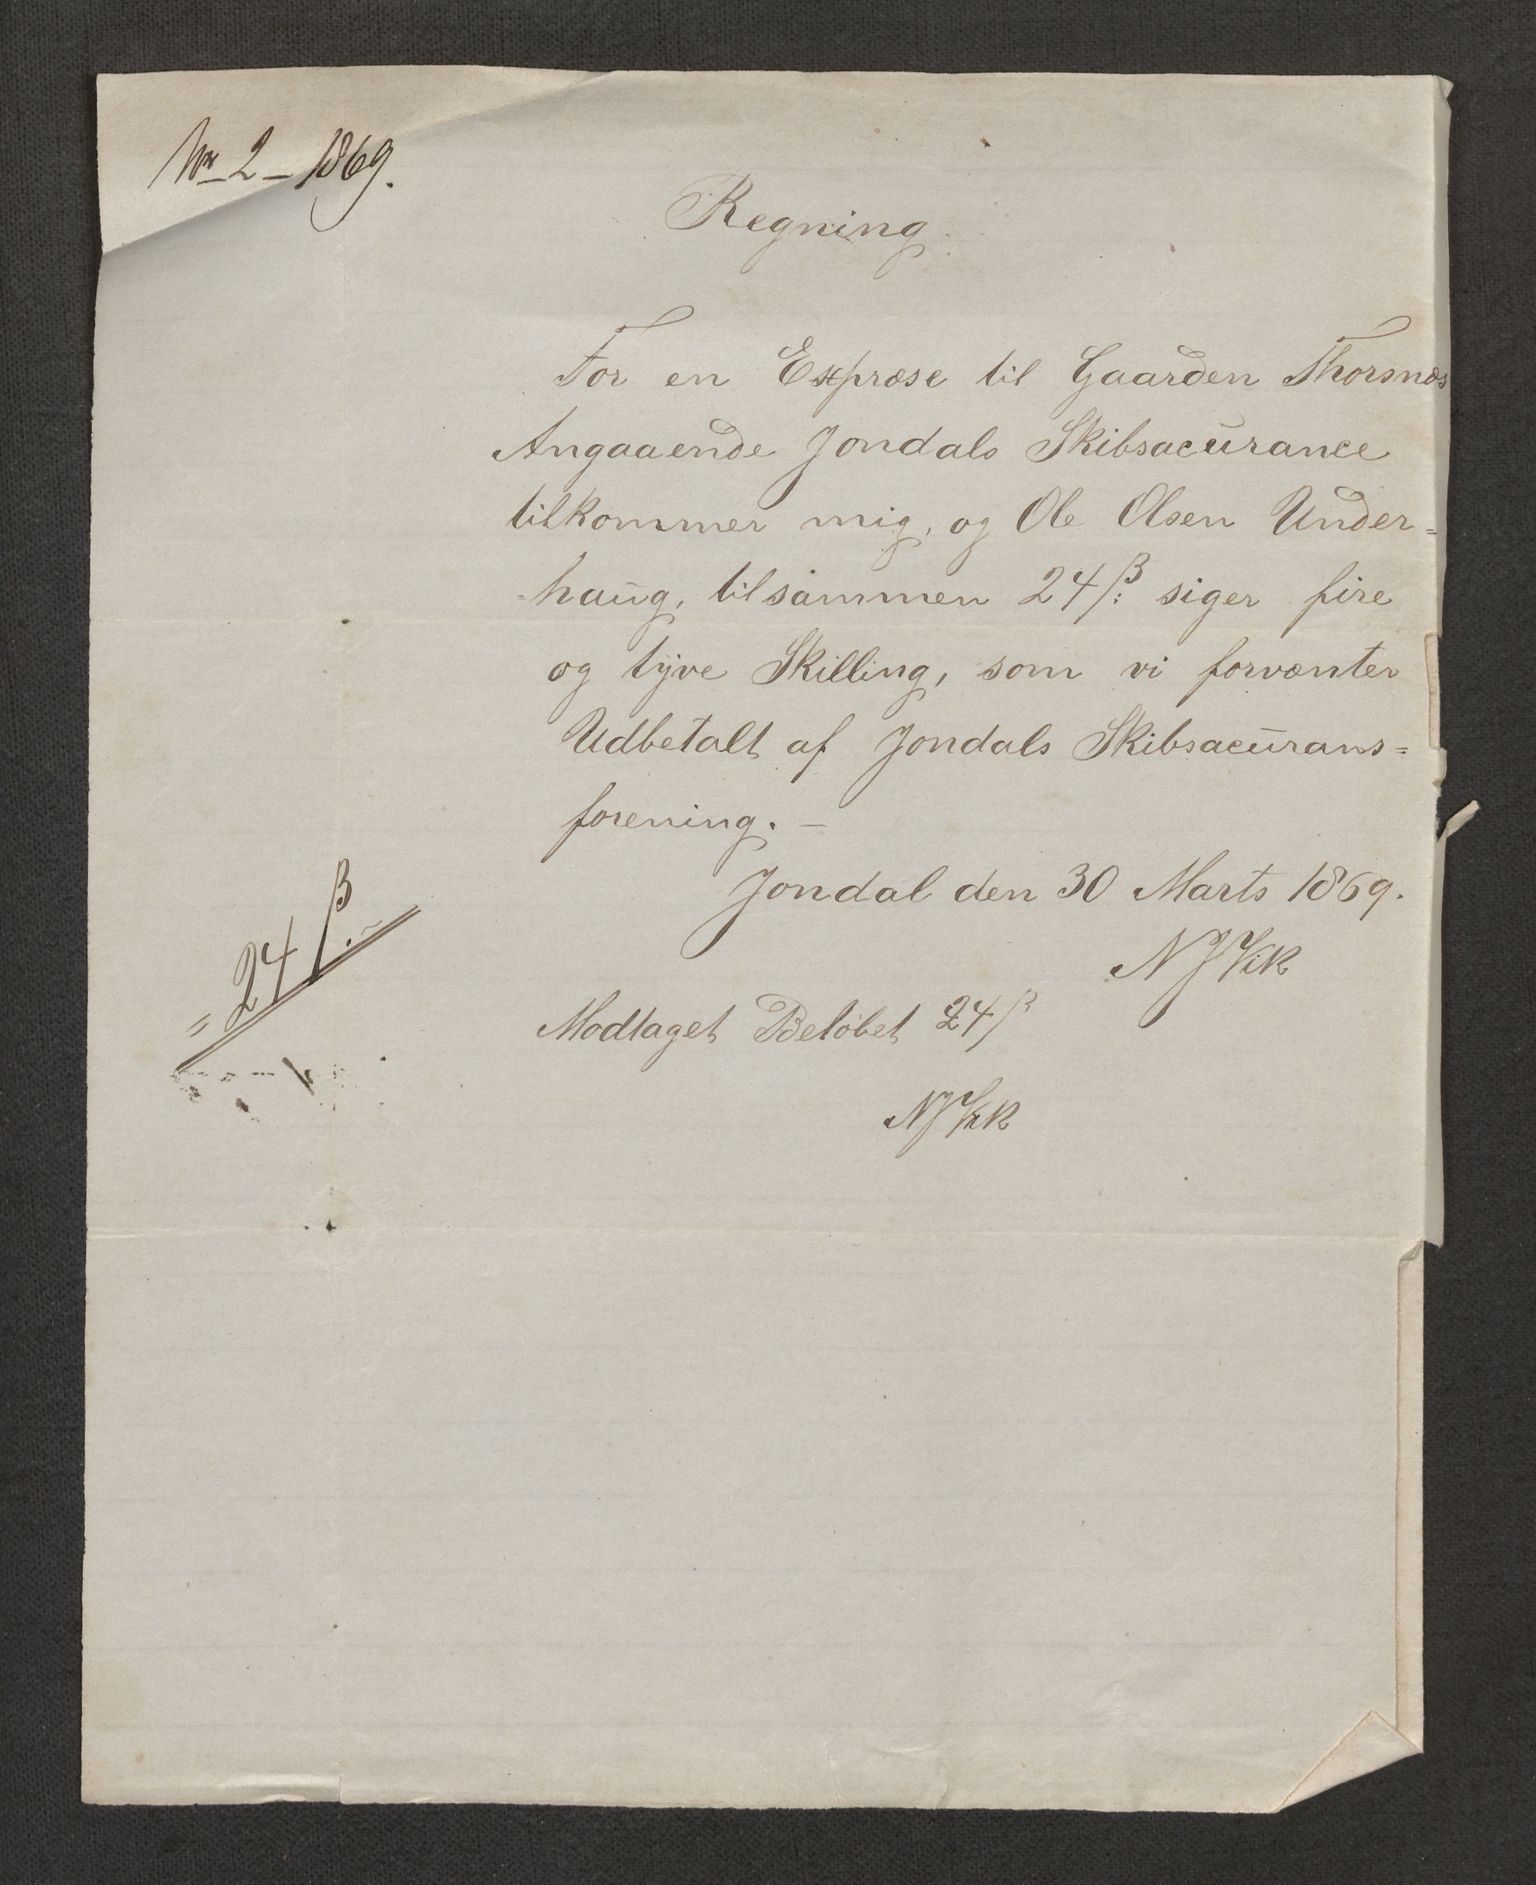 No 2 - 1869.
Regning.
For en Expræse til Gaarden Thorsnæs
Angaaende Jondals Skibsacurance
tilkommer mig, og Ole Olsen Under=
haug, tilsammen 24 ß: siger fire
og tyve Skilling, som vi forvænter
Udbetalt af Jondals Skibsacurans=
forening. —
Jondal den 30 Marts 1869.
N J Vik
" 24 ß.
Modtaget Beløbet 24 ß
N J Vik